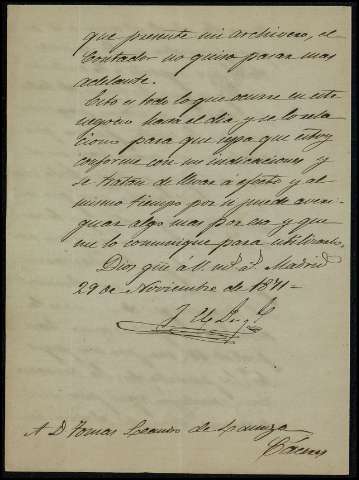 que presente mi archivero, el
Contador no quiso pasar mas
adelante.
Esto es todo lo que ocurre en este
negocio hasta el dia y se lo rela
ciono para que sepa que estoy
conforme con sus indicaciones y
se tratan de llevar á efecto y al
mismo tiempo por si puede averi
guar algo mas por esa y que
me lo comunique para utilizarlo.
Dios güe á V. m.s a.s Madrid
29 de Noviembre de 1871=
A D Tomas de
Cáceres